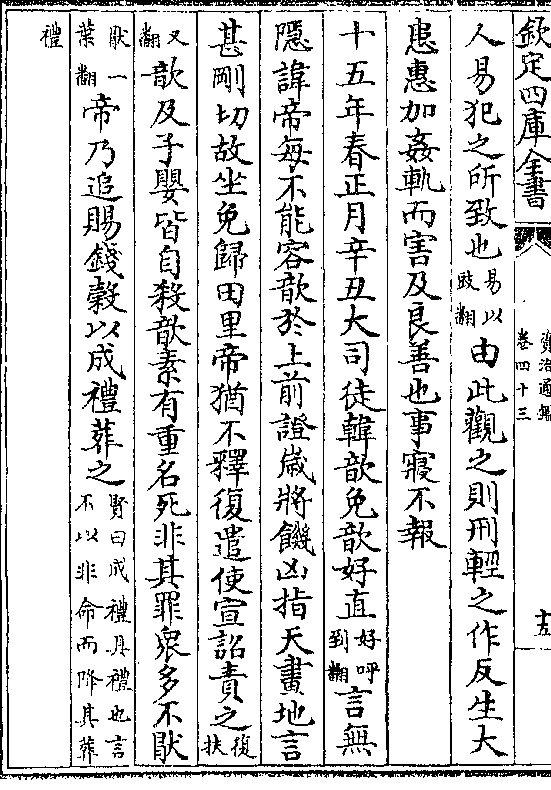 欽定四庫全書
資治通鑑
卷四十三
十五
人易犯之所致也易以豉翻由此觀之則刑輕之作反生大
患惠加姦軌而害及良善也事寢不報
十五年春正月辛丑大司徒韓歆免歆好直好呼到翻言無
隱諱帝每不能容歆於上前證歲將饑凶指天畫地言
甚剛切故坐免歸田里帝猶不釋復遣使宣詔責之復扶
又翻歆及子嬰皆自殺歆素有重名死非其罪衆多不厭
厭一葉翻帝乃追賜錢穀以成禮葬之賢曰成禮具禮也言不以非命而降其葬
禮